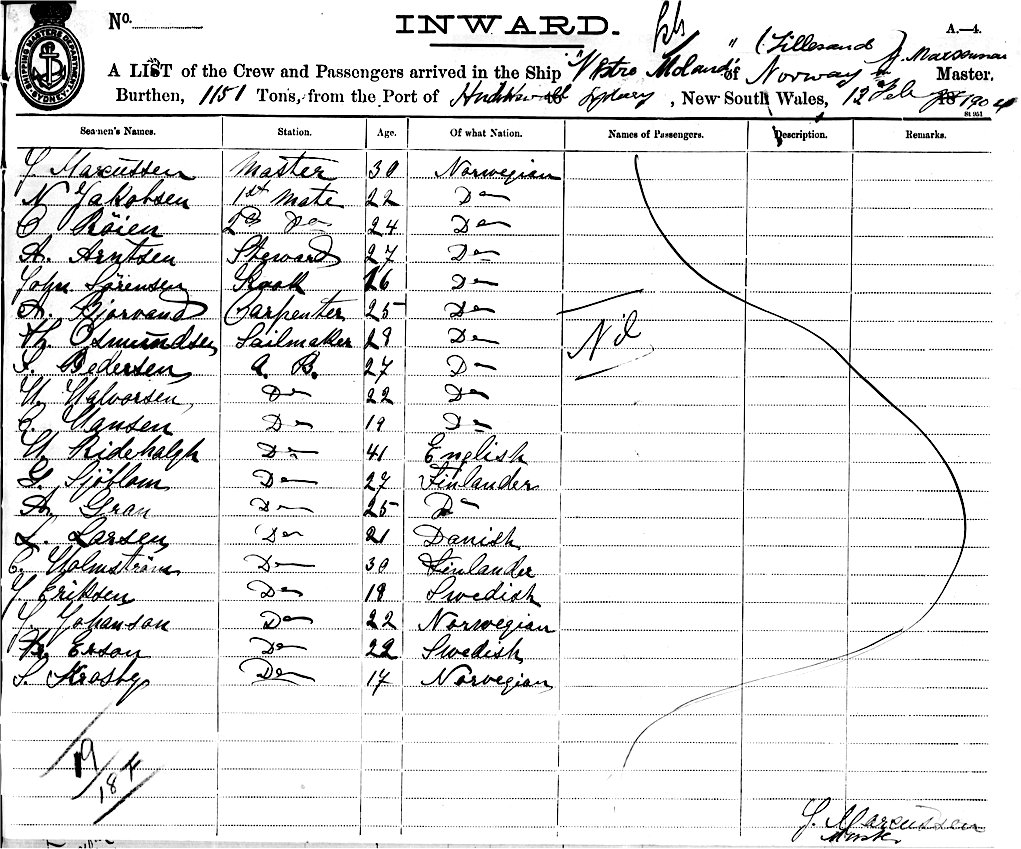 No.
INWARD.
A.—4.
A LIST of the Crew and Passengers arrived in the Ship "Vestre Moland" of (Lillesand) Norway Master.
Burthen, 1151 Tons, from the Port of to Sydney, New South Wales, 12 Feb 1904
St 951
SHIPPING MASTERS DEPARTMENT SYDNEY
Seamen's Names. Station. Age. Of what Nation. Names of Passengers. Description. Remarks.
J Marcussen Master 30 Norwegian
N Jakobsen 1st Mate 22 Do
O Röien 2d Do 24 Do
A. Arntsen Steward 27 Do
John. Sörensen Kook 26 Do
A. Bjorvand Carpenter 25 Do
Th. Osmundsen Sailmaker 28 Do
Nil
S. Pedersen A. B. 27 Do
H. Halvorsen Do 22 Do
C. Hansen Do 19 Do
H. Ridehalgh Do 41 English
G. Sjöblom Do 27 Finlander
A. Gran Do 25 Do
L. Larsen Do 21 Danish
C. Holmström Do 30 Finlander
J. Eriksen Do 18 Swedish
J. Johanson Do 22 Norwegian
Erson Do 22 Swedish
S. Krosby Do 17 Norwegian
19
J. Marcussen